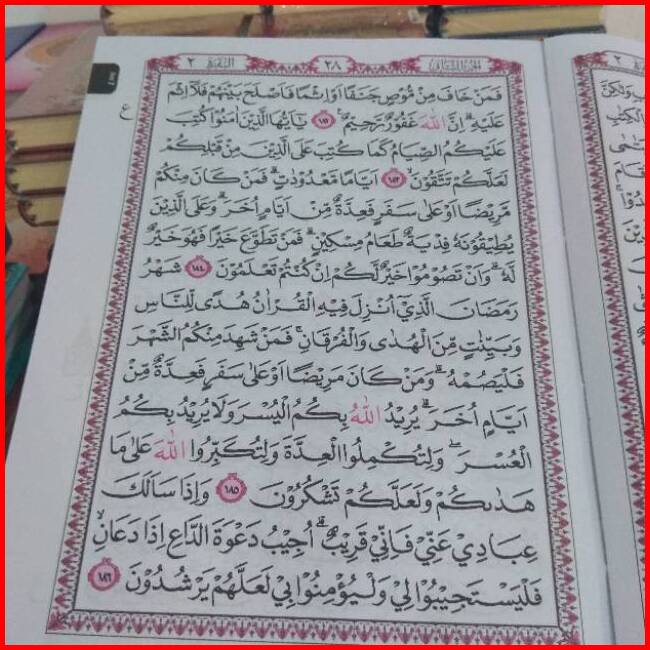 البقرة ٢
٢٨
الجزء الثاني
فَمَنْ خَافَ مِنْ مُّوْصٍ جَنَفًا اَوْ اِثْمًا فَاَصْلَحَ بَيْنَهُمْ فَلَآ اِثْمَ
عَلَيْهِ ۗ اِنَّ اللّٰهَ غَفُوْرٌ رَّحِيْمٌ ۝١٨٢ يٰٓاَيُّهَا الَّذِيْنَ اٰمَنُوْا كُتِبَ
عَلَيْكُمُ الصِّيَامُ كَمَا كُتِبَ عَلَى الَّذِيْنَ مِنْ قَبْلِكُمْ
لَعَلَّكُمْ تَتَّقُوْنَۙ ۝١٨٣ اَيَّامًا مَّعْدُوْدٰتٍۗ فَمَنْ كَانَ مِنْكُمْ
مَّرِيْضًا اَوْ عَلٰى سَفَرٍ فَعِدَّةٌ مِّنْ اَيَّامٍ اُخَرَ ۗ وَعَلَى الَّذِيْنَ
يُطِيْقُوْنَهٗ فِدْيَةٌ طَعَامُ مِسْكِيْنٍۗ فَمَنْ تَطَوَّعَ خَيْرًا فَهُوَ خَيْرٌ
لَّهٗ ۗ وَاَنْ تَصُوْمُوْا خَيْرٌ لَّكُمْ اِنْ كُنْتُمْ تَعْلَمُوْنَ ۝١٨٤ شَهْرُ
رَمَضَانَ الَّذِيْٓ اُنْزِلَ فِيْهِ الْقُرْاٰنُ هُدًى لِّلنَّاسِ
وَبَيِّنٰتٍ مِّنَ الْهُدٰى وَالْفُرْقَانِۚ فَمَنْ شَهِدَ مِنْكُمُ الشَّهْرَ
فَلْيَصُمْهُ ۗ وَمَنْ كَانَ مَرِيْضًا اَوْ عَلٰى سَفَرٍ فَعِدَّةٌ مِّنْ
اَيَّامٍ اُخَرَ ۗ يُرِيْدُ اللّٰهُ بِكُمُ الْيُسْرَ وَلَا يُرِيْدُ بِكُمُ
الْعُسْرَ ۖ وَلِتُكْمِلُوا الْعِدَّةَ وَلِتُكَبِّرُوا اللّٰهَ عَلٰى مَا
هَدٰىكُمْ وَلَعَلَّكُمْ تَشْكُرُوْنَ ۝١٨٥ وَاِذَا سَاَلَكَ
عِبَادِيْ عَنِّيْ فَاِنِّيْ قَرِيْبٌ ۗ اُجِيْبُ دَعْوَةَ الدَّاعِ اِذَا دَعَانِۙ
فَلْيَسْتَجِيْبُوْا لِيْ وَلْيُؤْمِنُوْا بِيْ لَعَلَّهُمْ يَرْشُدُوْنَ ۝١٨٦
ع